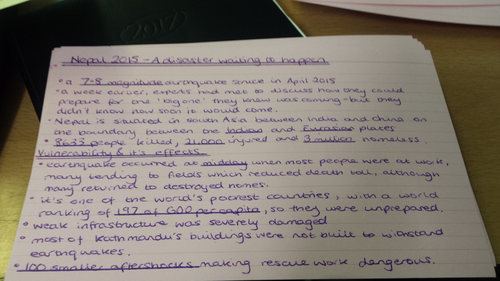 2017
Nepal 2015 - A disaster waiting to happen.
• a 7.8 magnitude earthquake struck in April 2015
• a week earlier, experts had met to discuss how they could
prepare for one 'big one' they knew was coming - but they
didn't know how soon it would come.
• Nepal is situated in South Asia between India and China on
the boundary between the Indian and Eurasian plates
• 8633 people killed, 21,000 injured and 3 million homeless.
Vulnerability & it's effects.
• earthquake occurred at midday when most people were at work,
many tending to fields which reduced death toll, although
many returned to destroyed homes.
• it's one of the world's poorest countries, with a world
ranking of 197 of GDP per capita, so they were unprepared.
• weak infrastructure was severely damaged
• most of Kathmandu's buildings were not built to withstand
earthquakes.
• 100 smaller aftershocks making rescue work dangerous.